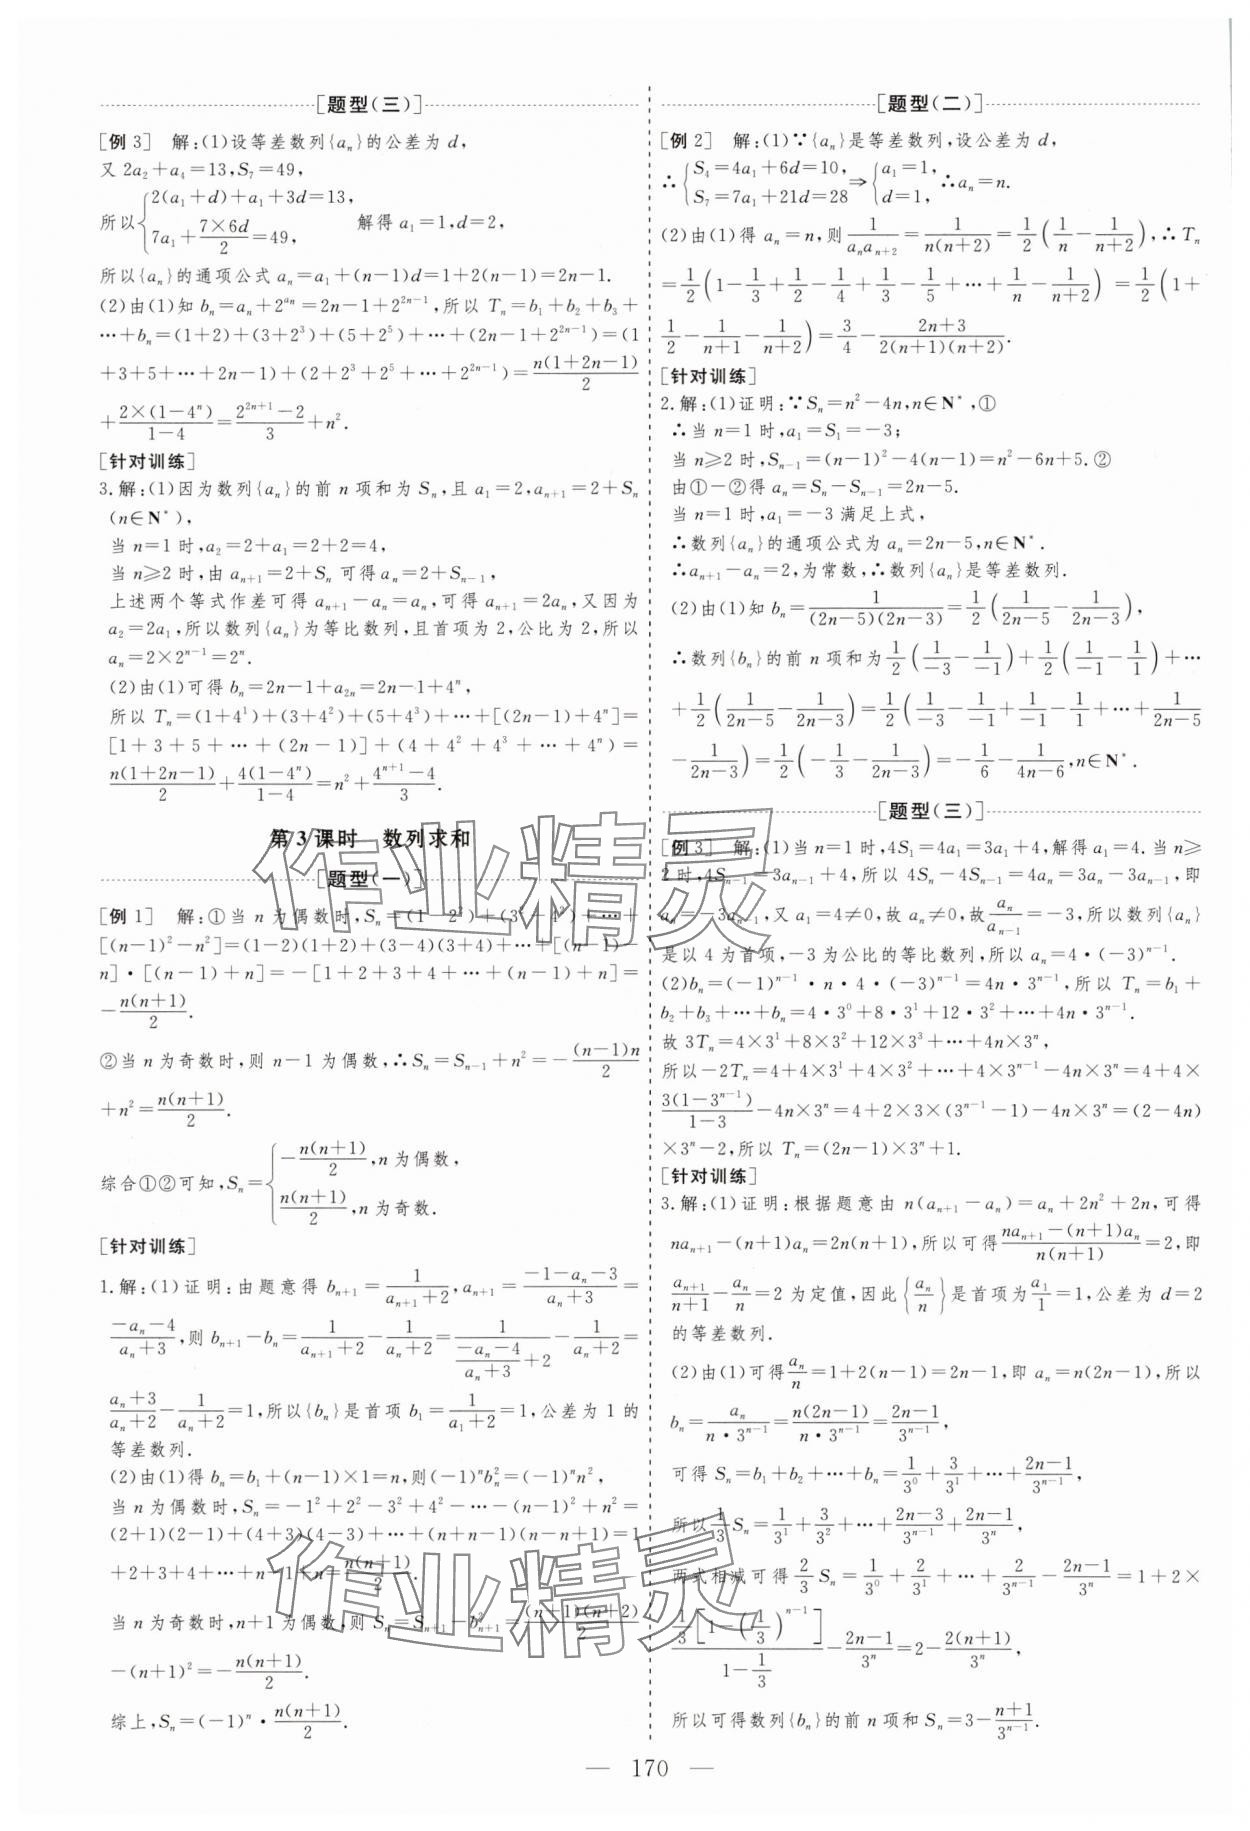 [题型(三)]
[例3] 解:(1)设等差数列{aₙ}的公差为 d,
又 2a₂+a₄=13,S₇=49,
所以{2(a₁+d)+a₁+3d=13, 7a₁+(7×6d)/2=49, 解得 a₁=1,d=2,
所以{aₙ}的通项公式 aₙ=a₁+(n-1)d=1+2(n-1)=2n-1.
(2)由(1)知 bₙ=aₙ+2^{aₙ}=2n-1+2^{2n-1},所以 Tₙ=b₁+b₂+b₃+
…+bₙ=(1+2)+(3+2³)+(5+2⁵)+…+(2n-1+2^{2n-1})=(1
+3+5+…+2n-1)+(2+2³+2⁵+…+2^{2n-1})=n(1+2n-1)/2
+2×(1-4ⁿ)/(1-4)=(2^{2n+1}-2)/3+n².
[针对训练]
3.解:(1)因为数列{aₙ}的前 n 项和为 Sₙ,且 a₁=2,aₙ₊₁=2+Sₙ
(n∈N*),
当 n=1 时,a₂=2+a₁=2+2=4,
当 n≥2 时,由 aₙ₊₁=2+Sₙ 可得 aₙ=2+Sₙ₋₁,
上述两个等式作差可得 aₙ₊₁-aₙ=aₙ,可得 aₙ₊₁=2aₙ,又因为
a₂=2a₁,所以数列{aₙ}为等比数列,且首项为 2,公比为 2,所以
aₙ=2×2ⁿ⁻¹=2ⁿ.
(2)由(1)可得 bₙ=2n-1+a₂ₙ=2n-1+4ⁿ,
所以 Tₙ=(1+4¹)+(3+4²)+(5+4³)+…+[(2n-1)+4ⁿ]=
[1+3+5+…+(2n-1)]+(4+4²+4³+…+4ⁿ)=
n(1+2n-1)/2+4(1-4ⁿ)/(1-4)=n²+(4ⁿ⁺¹-4)/3.
第3课时 数列求和
[题型(一)]
[例1] 解:①当 n 为偶数时,Sₙ=(1²-2²)+(3²-4²)+…+
[(n-1)²-n²]=(1-2)(1+2)+(3-4)(3+4)+…+[(n-1)-
n]·[(n-1)+n]=-[1+2+3+4+…+(n-1)+n]=
-n(n+1)/2.
②当 n 为奇数时,则 n-1 为偶数,∴Sₙ=Sₙ₋₁+n²=-(n-1)n/2
+n²=n(n+1)/2.
综合①②可知,Sₙ={-n(n+1)/2,n 为偶数, n(n+1)/2,n 为奇数.
[针对训练]
1.解:(1)证明:由题意得 bₙ₊₁=1/(aₙ₊₁+2),aₙ₊₁=(-1-aₙ-3)/(aₙ+3)=
(-aₙ-4)/(aₙ+3),则 bₙ₊₁-bₙ=1/(aₙ₊₁+2)-1/(aₙ+2)=1/((-aₙ-4)/(aₙ+3)+2)-1/(aₙ+2)=
(aₙ+3)/(aₙ+2)-1/(aₙ+2)=1,所以{bₙ}是首项 b₁=1/(a₁+2)=1,公差为 1 的
等差数列.
(2)由(1)得 bₙ=b₁+(n-1)×1=n,则(-1)ⁿbₙ²=(-1)ⁿn²,
当 n 为偶数时,Sₙ=-1²+2²-3²+4²-…-(n-1)²+n²=
(2+1)(2-1)+(4+3)(4-3)+…+(n+n-1)(n-n+1)=1
+2+3+4+…+n-1+n=n(n+1)/2.
当 n 为奇数时,n+1 为偶数,则 Sₙ=Sₙ₊₁-b²ₙ₊₁=(n+1)(n+2)/2
-(n+1)²=-n(n+1)/2.
综上,Sₙ=(-1)ⁿ·n(n+1)/2.
[题型(二)]
[例2] 解:(1)∵{aₙ}是等差数列,设公差为 d,
∴{S₄=4a₁+6d=10, S₇=7a₁+21d=28⇒{a₁=1, d=1, ∴aₙ=n.
(2)由(1)得 aₙ=n,则1/(aₙaₙ₊₂)=1/(n(n+2))=1/2(1/n-1/(n+2)),∴Tₙ
=1/2(1-1/3+1/2-1/4+1/3-1/5+…+1/n-1/(n+2))=1/2(1+
1/2-1/(n+1)-1/(n+2))=3/4-(2n+3)/(2(n+1)(n+2)).
[针对训练]
2.解:(1)证明:∵Sₙ=n²-4n,n∈N*,①
∴当 n=1 时,a₁=S₁=-3;
当 n≥2 时,Sₙ₋₁=(n-1)²-4(n-1)=n²-6n+5.②
由①-②得 aₙ=Sₙ-Sₙ₋₁=2n-5.
当 n=1 时,a₁=-3 满足上式,
∴数列{aₙ}的通项公式为 aₙ=2n-5,n∈N*.
∴aₙ₊₁-aₙ=2,为常数,∴数列{aₙ}是等差数列.
(2)由(1)知 bₙ=1/((2n-5)(2n-3))=1/2(1/(2n-5)-1/(2n-3)),
∴数列{bₙ}的前 n 项和为1/2(1/(-3)-1/(-1))+1/2(1/(-1)-1/1)+…
+1/2(1/(2n-5)-1/(2n-3))=1/2(1/(-3)-1/(-1)+1/(-1)-1/1+…+1/(2n-5)
-1/(2n-3))=1/2(-1/3-1/(2n-3))=-1/6-1/(4n-6),n∈N*.
[题型(三)]
[例3] 解:(1)当 n=1 时,4S₁=4a₁=3a₁+4,解得 a₁=4.当 n≥
2 时,4Sₙ₋₁=3aₙ₋₁+4,所以 4Sₙ-4Sₙ₋₁=4aₙ=3aₙ-3aₙ₋₁,即
aₙ=-3aₙ₋₁,又 a₁=4≠0,故 aₙ≠0,故aₙ/aₙ₋₁=-3,所以数列{aₙ}
是以 4 为首项,-3 为公比的等比数列,所以 aₙ=4·(-3)ⁿ⁻¹.
(2)bₙ=(-1)ⁿ⁻¹·n·4·(-3)ⁿ⁻¹=4n·3ⁿ⁻¹,所以 Tₙ=b₁+
b₂+b₃+…+bₙ=4·3⁰+8·3¹+12·3²+…+4n·3ⁿ⁻¹.
故 3Tₙ=4×3¹+8×3²+12×3³+…+4n×3ⁿ,
所以-2Tₙ=4+4×3¹+4×3²+…+4×3ⁿ⁻¹-4n×3ⁿ=4+4×
3(1-3ⁿ⁻¹)/(1-3)-4n×3ⁿ=4+2×3×(3ⁿ⁻¹-1)-4n×3ⁿ=(2-4n)
×3ⁿ-2,所以 Tₙ=(2n-1)×3ⁿ+1.
[针对训练]
3.解:(1)证明:根据题意由 n(aₙ₊₁-aₙ)=aₙ+2n²+2n,可得
naₙ₊₁-(n+1)aₙ=2n(n+1),所以可得(naₙ₊₁-(n+1)aₙ)/(n(n+1))=2,即
aₙ₊₁/(n+1)-aₙ/n=2 为定值,因此{aₙ/n}是首项为a₁/1=1,公差为 d=2
的等差数列.
(2)由(1)可得aₙ/n=1+2(n-1)=2n-1,即 aₙ=n(2n-1),所以
bₙ=aₙ/(n·3ⁿ⁻¹)=n(2n-1)/(n·3ⁿ⁻¹)=(2n-1)/3ⁿ⁻¹,
可得 Sₙ=b₁+b₂+…+bₙ=1/3⁰+3/3¹+…+(2n-1)/3ⁿ⁻¹,
所以1/3Sₙ=1/3¹+3/3²+…+(2n-3)/3ⁿ⁻¹+(2n-1)/3ⁿ,
两式相减可得2/3Sₙ=1/3⁰+2/3¹+…+2/3ⁿ⁻¹-(2n-1)/3ⁿ=1+2×
1/3[1-(1/3)ⁿ⁻¹]/(1-1/3)-(2n-1)/3ⁿ=2-2(n+1)/3ⁿ,
所以可得数列{bₙ}的前 n 项和 Sₙ=3-(n+1)/3ⁿ⁻¹.
— 170 —
作业精灵
作业精灵